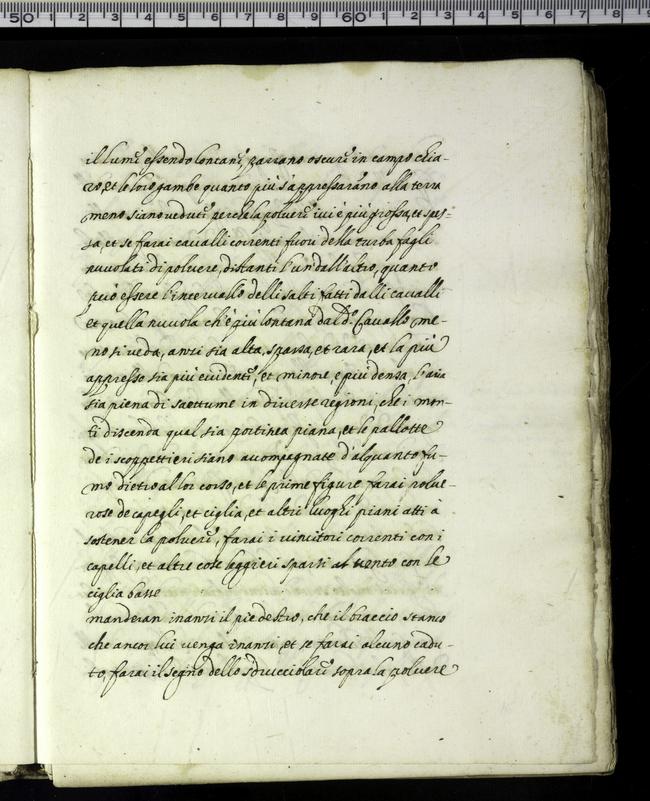 50 1 2 3 4 5 6 7 8 9 60 1 2 3 4 5 6 7 8 9
il lumi essendo lontani, parrano oscuri in campo chia-
ro, et le loro gambe quanto più s'appressarano alla terra
meno siano vedute perche la polvere ivi è più grossa, et spes-
sa, et se farai cavalli correnti fuori della turba fagli
nuvolati di polvere, distanti l'un dall'altro, quanto
può essere l'intervallo delli salti fatti dalli cavalli
et quella nuvola ch'è più lontana dal d.º Cavallo me-
no si veda, anzi sia alta, sparsa, et rara, et la più
appresso sia più evidente, et minore, e più densa, l'aria
sia piena di saettume in diverse regioni, che i mon-
ti discenda qual sia portinea piana, et le pallotte
de i scoppettieri siano accompagnate d'alquanto fu-
mo dietro al lor corso, et le prime figure farai polve-
rose de capegli, et ciglia, et altri luoghi piani atti à
sostener la polvere, farai i vincitori correnti con i
capelli, et altre cose leggieri sparsi al vento con le
ciglia basse
manderan inanzi il pie destro, che il braccio stanco
che ancor lui venga inanzi, et se farai alcuno cadu-
to, farai il segno dello sdrucciolare sopra la polvere